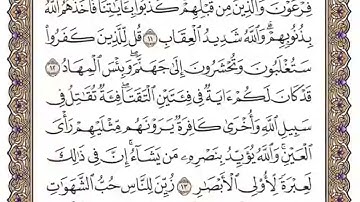 فِرْعَوْنَ وَالَّذِينَ مِن قَبْلِهِمْ كَذَّبُوا۟ بِـَٔايَـٰتِنَا فَأَخَذَهُمُ ٱللَّهُ
بِذُنُوبِهِمْ ۗ وَٱللَّهُ شَدِيدُ ٱلْعِقَابِ ١١ قُل لِّلَّذِينَ كَفَرُوا۟
سَتُغْلَبُونَ وَتُحْشَرُونَ إِلَىٰ جَهَنَّمَ ۚ وَبِئْسَ ٱلْمِهَادُ ١٢
قَدْ كَانَ لَكُمْ ءَايَةٌ فِى فِئَتَيْنِ ٱلْتَقَتَا ۖ فِئَةٌ تُقَـٰتِلُ فِى
سَبِيلِ ٱللَّهِ وَأُخْرَىٰ كَافِرَةٌ يَرَوْنَهُم مِّثْلَيْهِمْ رَأْىَ
ٱلْعَيْنِ ۚ وَٱللَّهُ يُؤَيِّدُ بِنَصْرِهِۦ مَن يَشَآءُ ۗ إِنَّ فِى ذَٰلِكَ
لَعِبْرَةً لِّأُو۟لِى ٱلْأَبْصَـٰرِ ١٣ زُيِّنَ لِلنَّاسِ حُبُّ ٱلشَّهَوَٰتِ